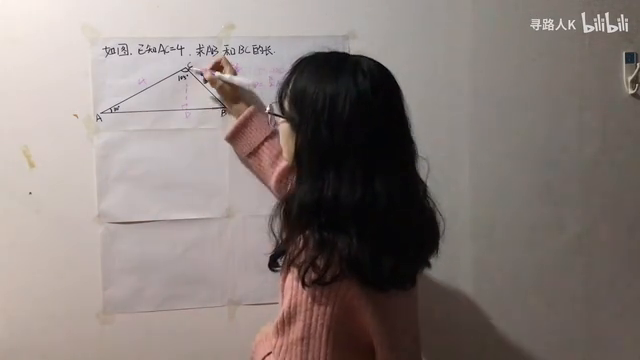 寻路人K bilibili
如图,已知AC=4,求AB和BC的长.
C
105°
A
30°
B
D